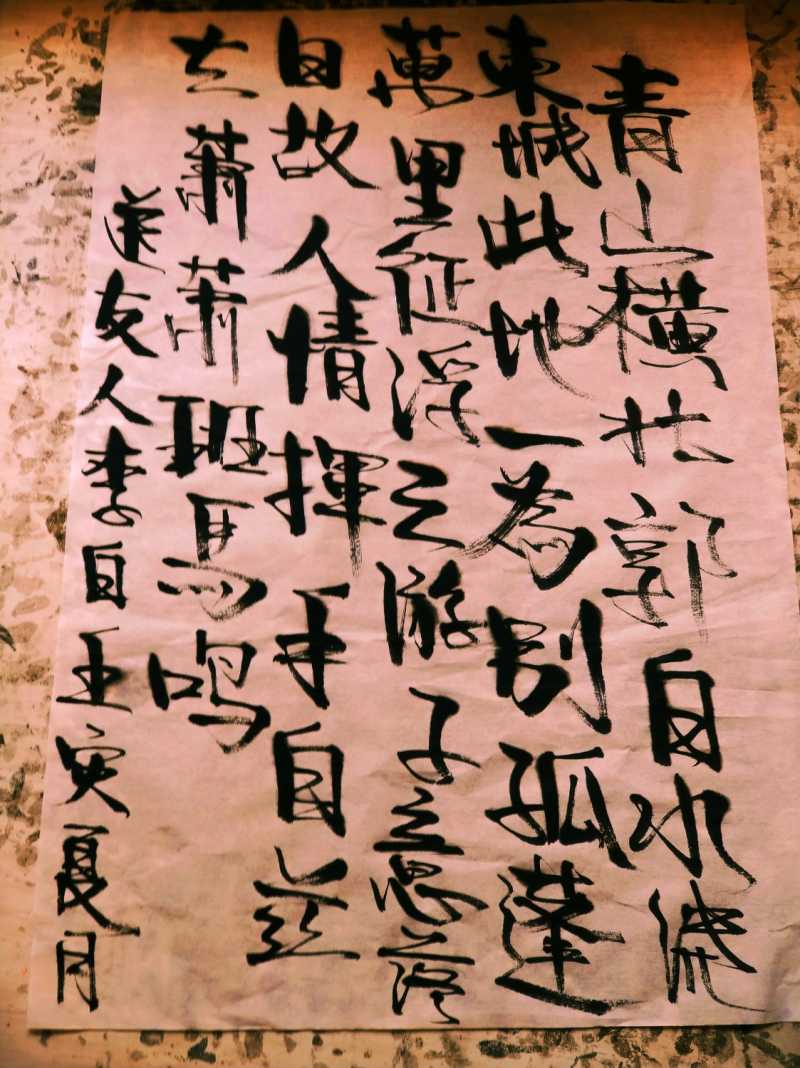 青山横北郭白水繞
東城此地一為別孤蓬
萬里征浮云游子意落
日故人情揮手自茲
去蕭蕭班馬鳴
送友人李白壬寅夏月